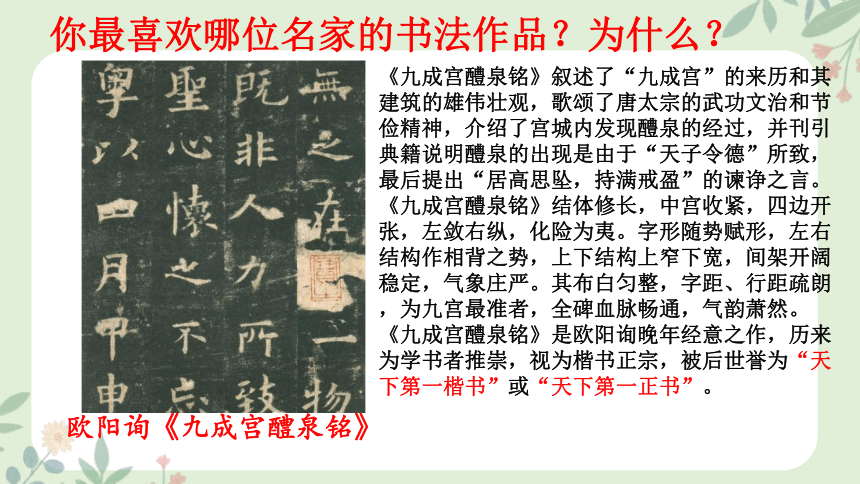 你最喜欢哪位名家的书法作品？为什么？
無之在一物
既非人力所致
聖心懷之不忘
粤以四月甲申
欧阳询《九成宫醴泉铭》
《九成宫醴泉铭》叙述了“九成宫”的来历和其
建筑的雄伟壮观，歌颂了唐太宗的武功文治和节
俭精神，介绍了宫城内发现醴泉的经过，并刊引
典籍说明醴泉的出现是由于“天子令德”所致，
最后提出“居高思坠，持满戒盈”的谏诤之言。
《九成宫醴泉铭》结体修长，中宫收紧，四边开
张，左敛右纵，化险为夷。字形随势赋形，左右
结构作相背之势，上下结构上窄下宽，间架开阔
稳定，气象庄严。其布白匀整，字距、行距疏朗
，为九宫最准者，全碑血脉畅通，气韵萧然。
《九成宫醴泉铭》是欧阳询晚年经意之作，历来
为学书者推崇，视为楷书正宗，被后世誉为“天
下第一楷书”或“天下第一正书”。